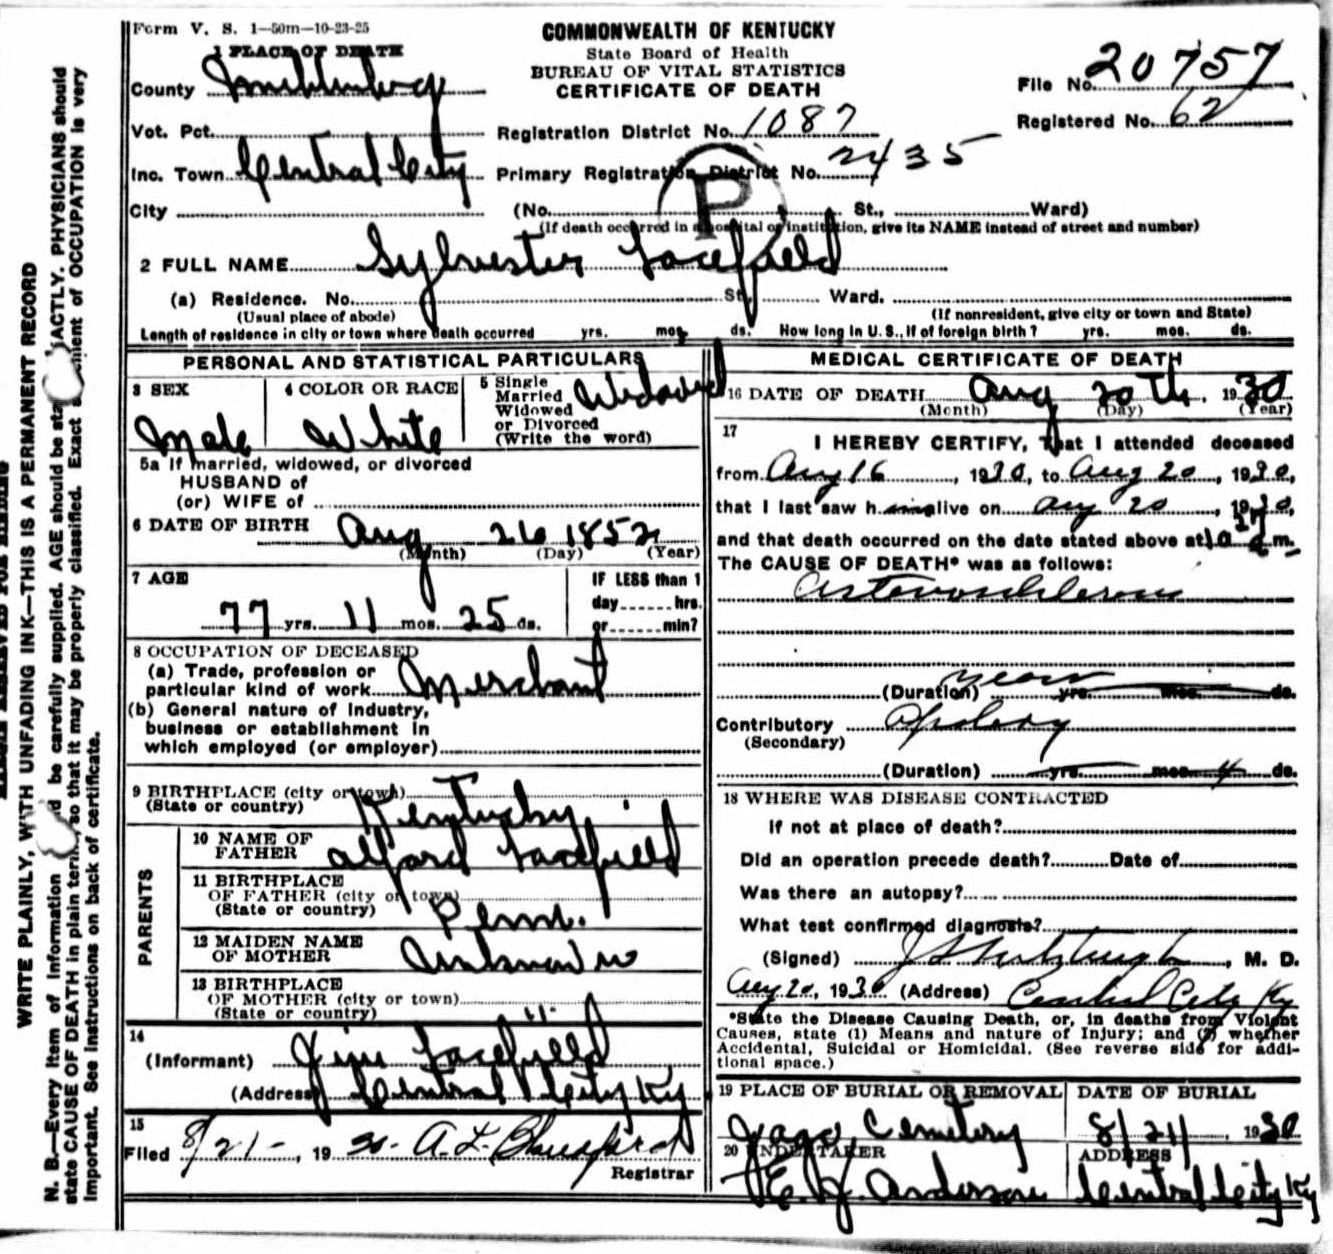 Form V. S. 1—50m—10-23-25
COMMONWEALTH OF KENTUCKY
State Board of Health
BUREAU OF VITAL STATISTICS
CERTIFICATE OF DEATH
File No. 20757
Registered No. 62
1 PLACE OF DEATH
County Muhlenberg
Vot. Pct.
Registration District No. 1087
Inc. Town Central City
Primary Registration District No. 2435
P
City
(No. St., Ward)
(If death occurred in a hospital or institution, give its NAME instead of street and number)
2 FULL NAME Sylvester Lacefield
(a) Residence. No. St., Ward.
(Usual place of abode)
(If nonresident, give city or town and State)
Length of residence in city or town where death occurred yrs. mos. ds. How long in U. S., if of foreign birth? yrs. mos. ds.
PERSONAL AND STATISTICAL PARTICULARS
3 SEX
Male
4 COLOR OR RACE
White
5 Single
Married
Widowed
or Divorced
(Write the word)
Widowed
5a If married, widowed, or divorced
HUSBAND of
(or) WIFE of
6 DATE OF BIRTH Aug 26 1852
(Month) (Day) (Year)
7 AGE
77 yrs. 11 mos. 25 ds.
IF LESS than 1
day hrs.
or min?
8 OCCUPATION OF DECEASED
(a) Trade, profession or
particular kind of work Merchant
(b) General nature of industry,
business or establishment in
which employed (or employer)
9 BIRTHPLACE (city or town)
(State or country) Kentucky
PARENTS
10 NAME OF
FATHER Alford Lacefield
11 BIRTHPLACE
OF FATHER (city or town)
(State or country) Penn.
12 MAIDEN NAME
OF MOTHER Unknown
13 BIRTHPLACE
OF MOTHER (city or town)
(State or country) "
14
(Informant) Jim Lacefield
(Address) Central City Ky
15
Filed 8/21-, 1930- A. L.
Registrar
MEDICAL CERTIFICATE OF DEATH
16 DATE OF DEATH Aug 20th, 1930
(Month) (Day) (Year)
17
I HEREBY CERTIFY, That I attended deceased
from Aug 16, 1930, to Aug 20, 1930,
that I last saw him alive on Aug 20, 1930,
and that death occurred on the date stated above at m.
The CAUSE OF DEATH* was as follows:
(Duration) years yrs. mos. ds.
Contributory
(Secondary)
(Duration) yrs. mos. 4 ds.
18 WHERE WAS DISEASE CONTRACTED
If not at place of death?
Did an operation precede death? Date of
Was there an autopsy?
What test confirmed diagnosis?
(Signed) , M. D.
Aug 20, 1930 (Address) Central City Ky
*State the Disease Causing Death, or, in deaths from Violent
Causes, state (1) Means and nature of Injury; and (2) whether
Accidental, Suicidal or Homicidal. (See reverse side for addi-
tional space.)
19 PLACE OF BURIAL OR REMOVAL
Cemetery
DATE OF BURIAL
8/21, 1930
20 UNDERTAKER
Anderson
ADDRESS
Central City Ky
WRITE PLAINLY, WITH UNFADING INK—THIS IS A PERMANENT RECORD
N. B.—Every item of information be carefully supplied. AGE should be EXACTLY. PHYSICIANS should
state CAUSE OF DEATH in plain so that it may be properly classified. Exact of OCCUPATION is very
important. See instructions on back of certificate.